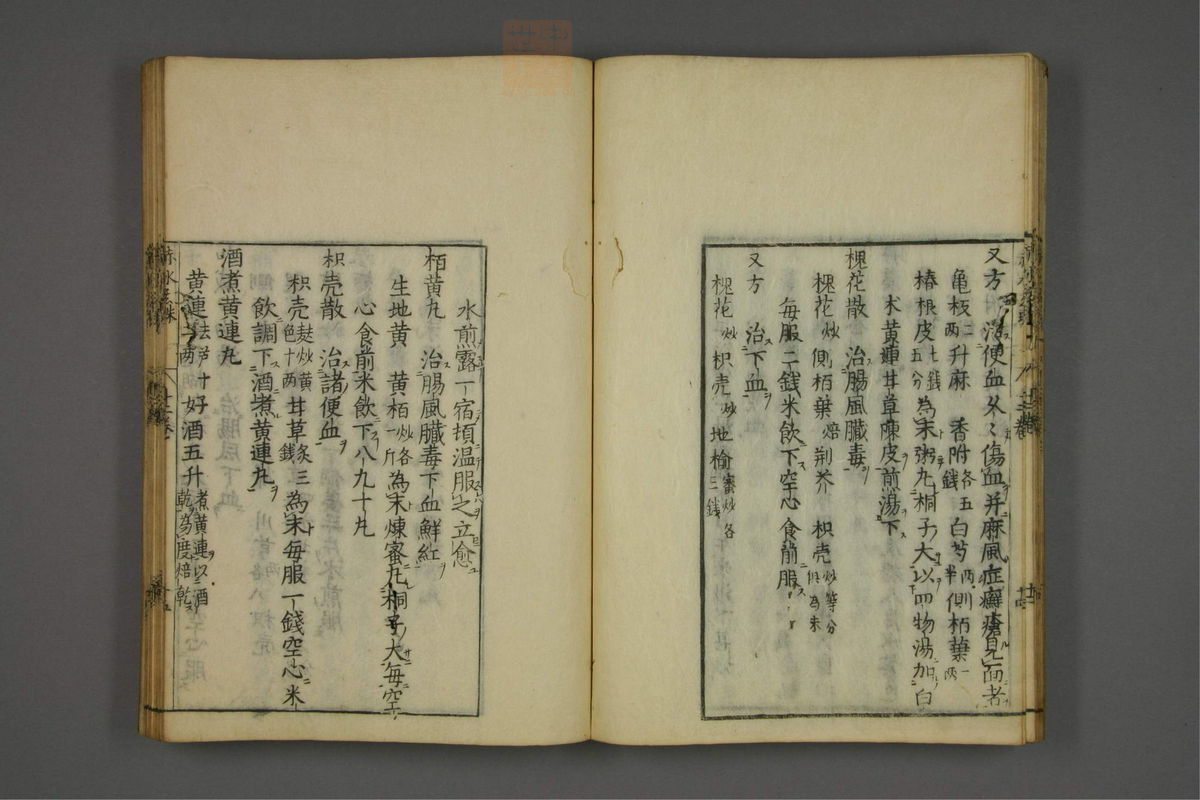 又方 治便血久久傷血并麻風症癬瘡見面者
亀板二両升麻 香附各五錢白芍両半側栢葉一両
椿根皮七錢五分為末粥丸桐子大以四物湯加白
朮黄連甘草陳皮煎湯下
槐花散 治腸風臓毒
槐花炒側栢葉焙荆芥 枳壳炒等分俱為末
毎服二錢米飲下空心食前服
又方 治下血
槐花炒枳壳炒地榆蜜炒各三錢
水煎露一宿頓温服之立愈
栢黄丸 治腸風臓毒下血鮮紅
生地黄 黄栢炒各一斤為末煉蜜丸桐子大毎空
心食前米飲下八九十丸
枳壳散 治諸便血
枳壳麸炒黄色十両甘草炙三錢為末毎服一錢空心米
飲調下酒煮黄連丸
酒煮黄連丸
黄連去芦十二両好酒五升煮黄連以酒乾為度焙乾
赤水玄珠